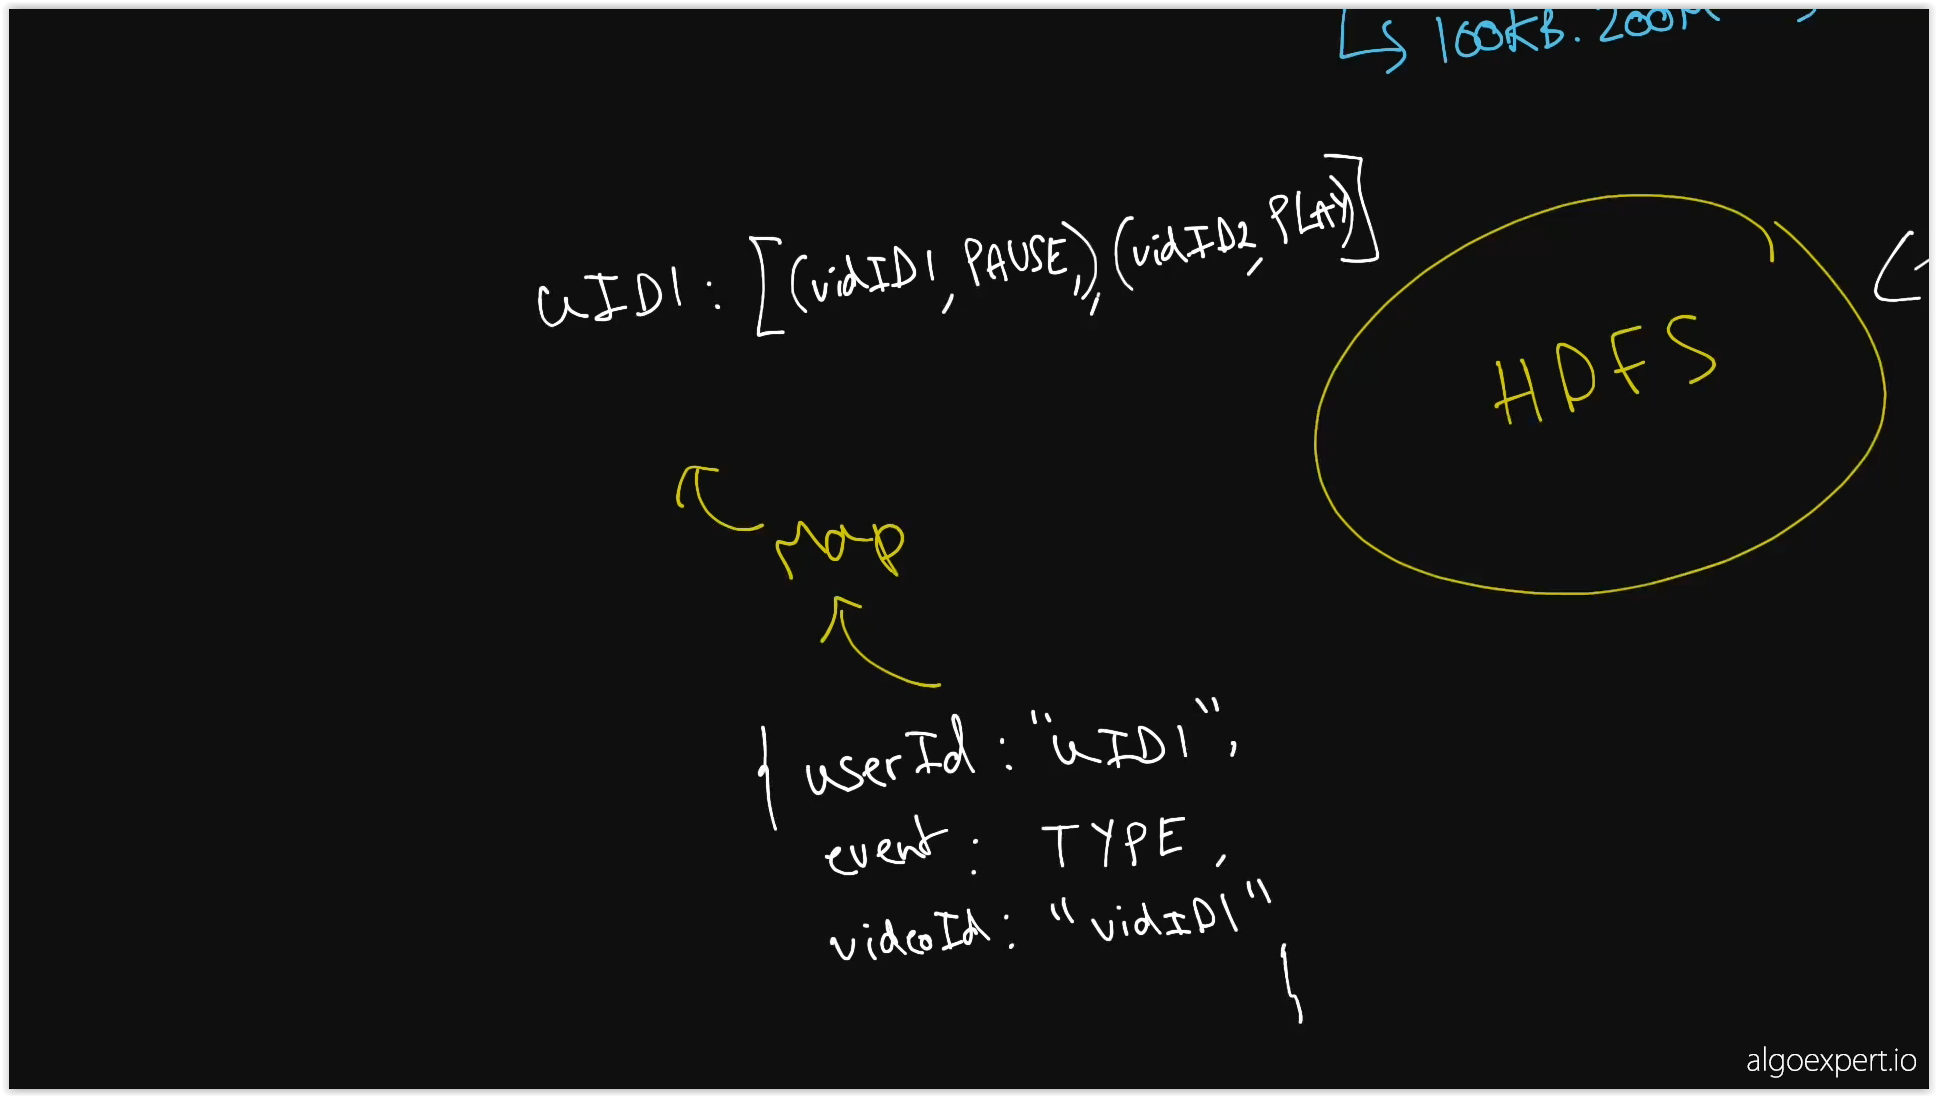 ↳ 100KB. 200M
uID1 : [(vidID1, PAUSE,), (vidID2, PLAY)]
HDFS
Map
{ userId : "uID1",
event : TYPE,
videoId : "vidID1"
}
algoexpert.io